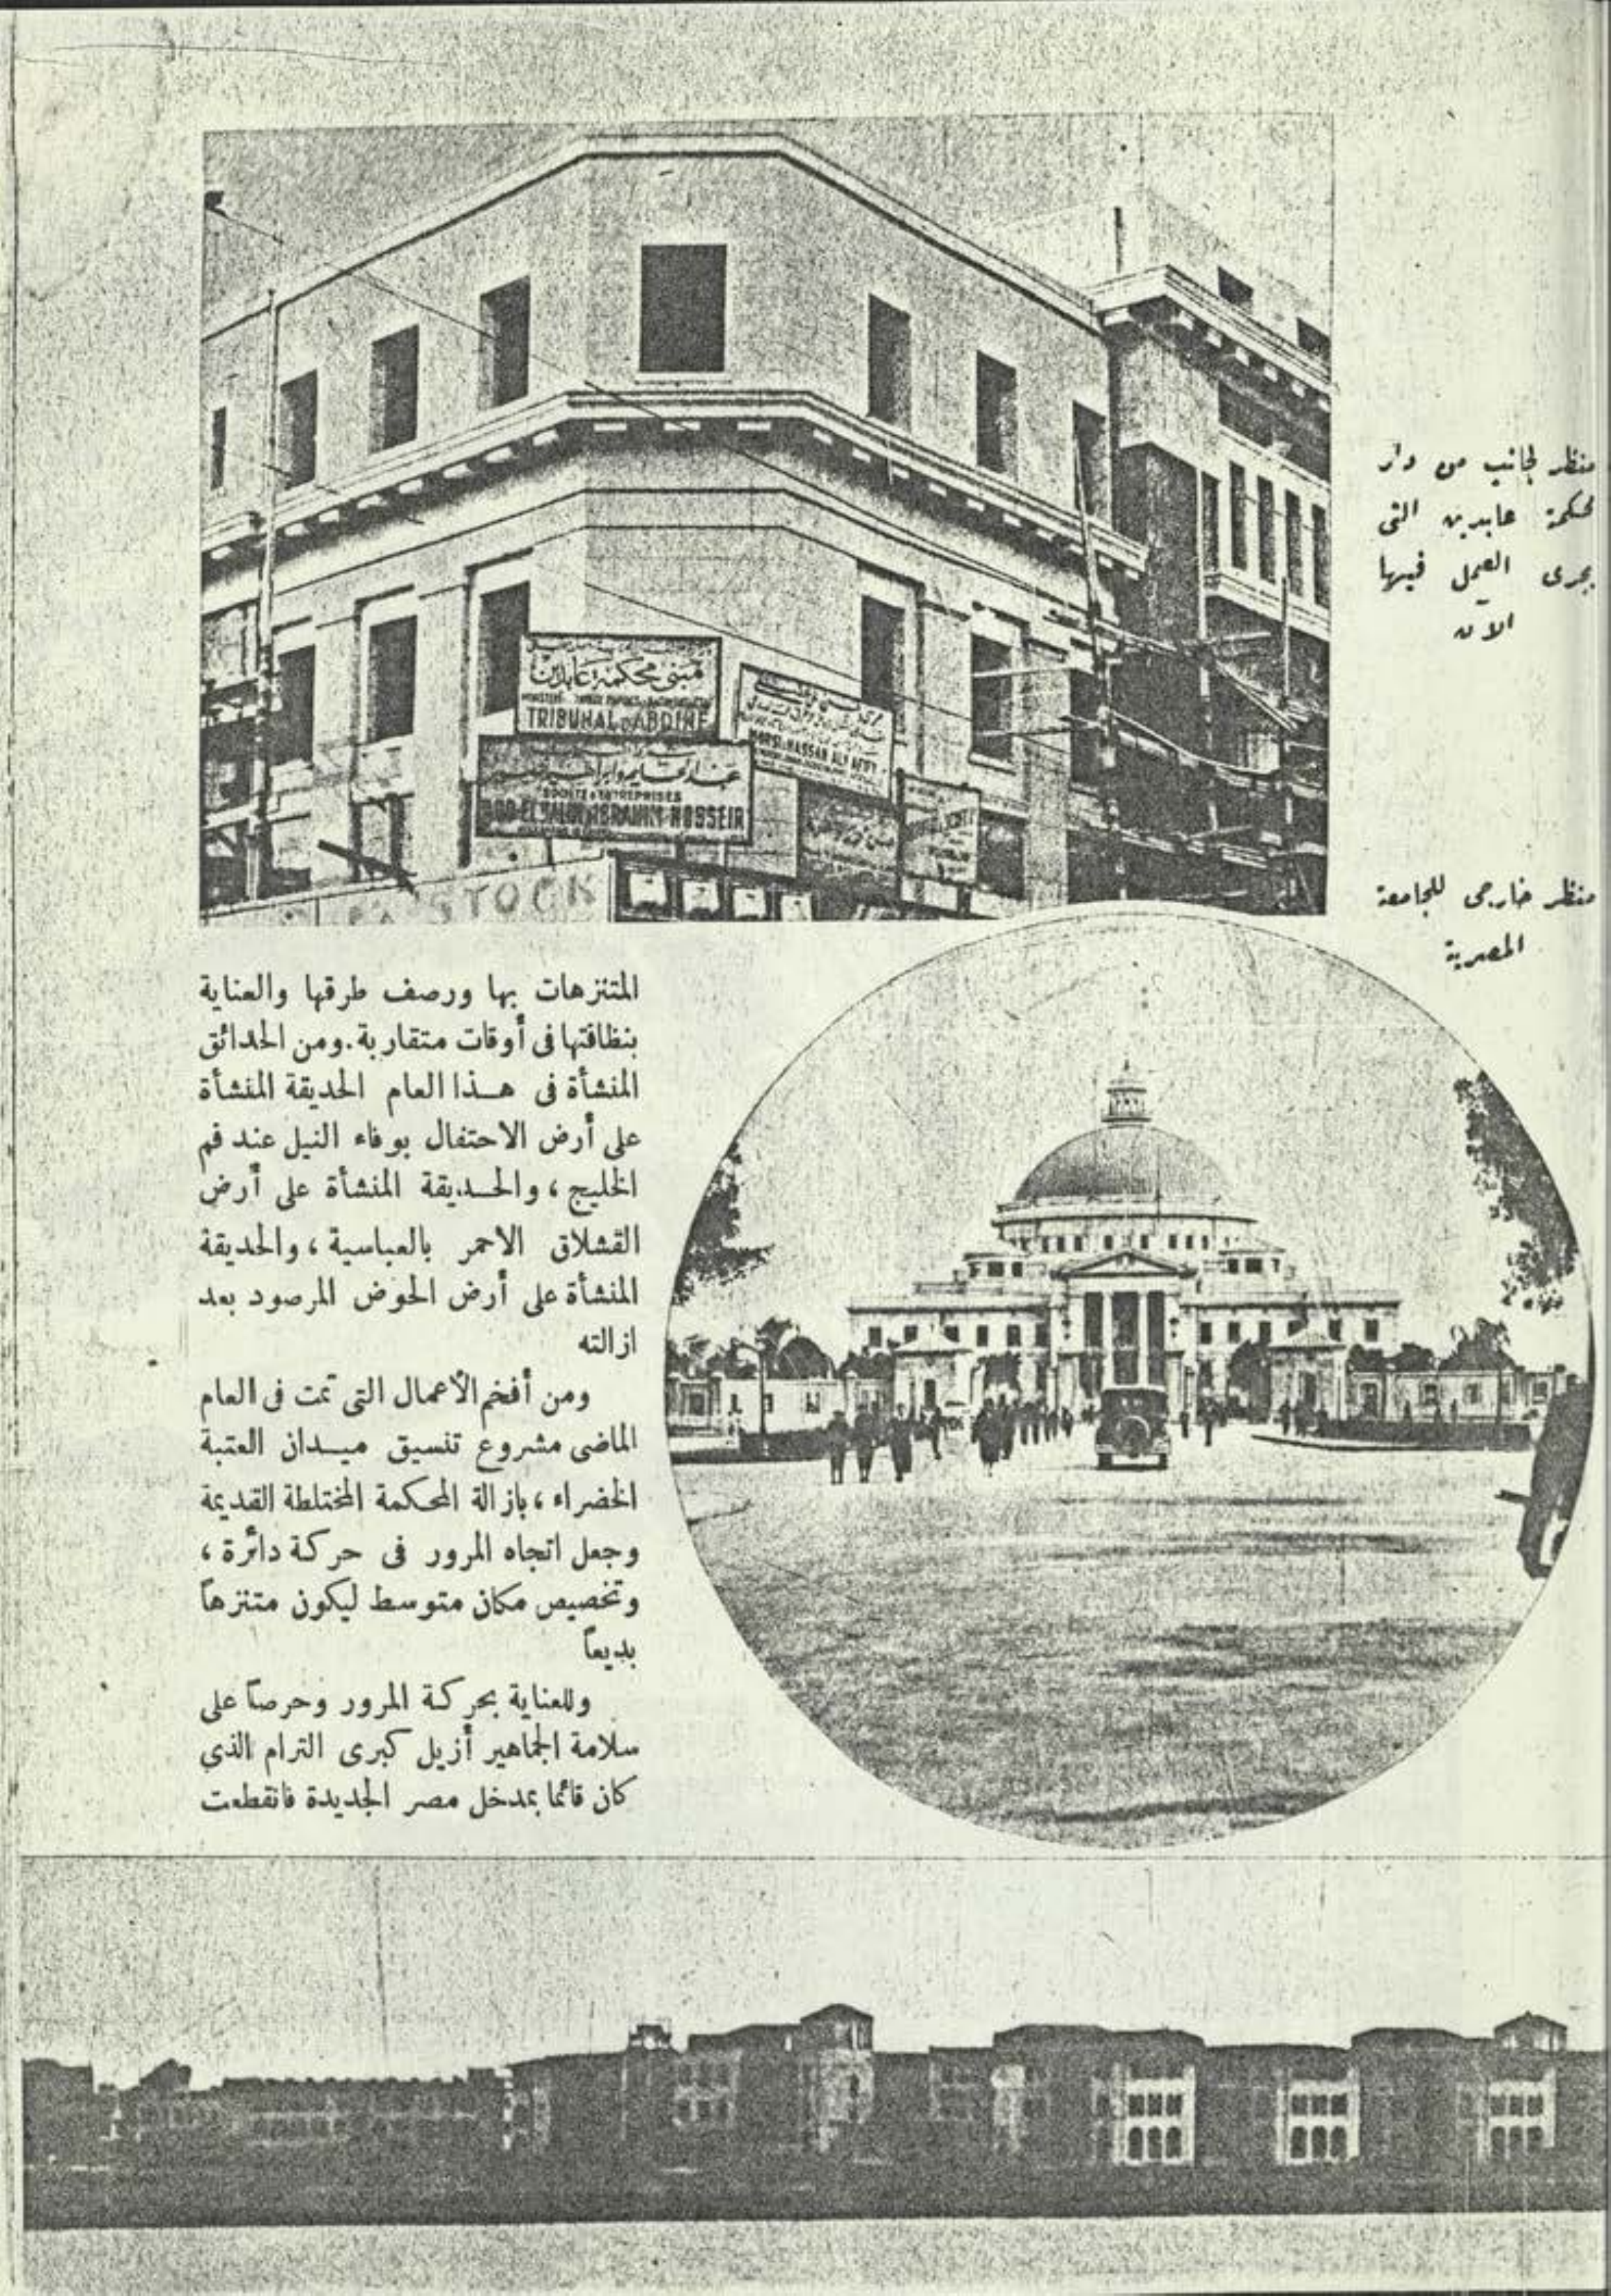 منظر لجانب من دار
محكمة عابدين التى
يجرى العمل فيها
الآن
مبنى محكمة عابدين
TRIBUNAL D'ABDINE
MORSI & HASSAN ALY AFIFY
SOCIETE D'ENTREPRISES
STOCK
منظر خارجى للجامعة
المصرية
المتنزهات بها ورصف طرقها والعناية
بنظافتها فى أوقات متقاربة . ومن الحدائق
المنشأة فى هذا العام الحديقة المنشأة
على أرض الاحتفال بوفاء النيل عند فم
الخليج ، والحديقة المنشأة على أرض
القشلاق الاحمر بالعباسية ، والحديقة
المنشأة على أرض الحوض المرصود بعد
ازالته
ومن أفخم الأعمال التى تمت فى العام
الماضى مشروع تنسيق ميدان العتبة
الخضراء ، بازالة المحكمة المختلطة القديمة
وجعل اتجاه المرور فى حركة دائرة ،
وتخصيص مكان متوسط ليكون متنزهاً
بديعاً
وللعناية بحركة المرور وحرصاً على
سلامة الجماهير أزيل كبرى الترام الذى
كان قائما بمدخل مصر الجديدة فانقطعت